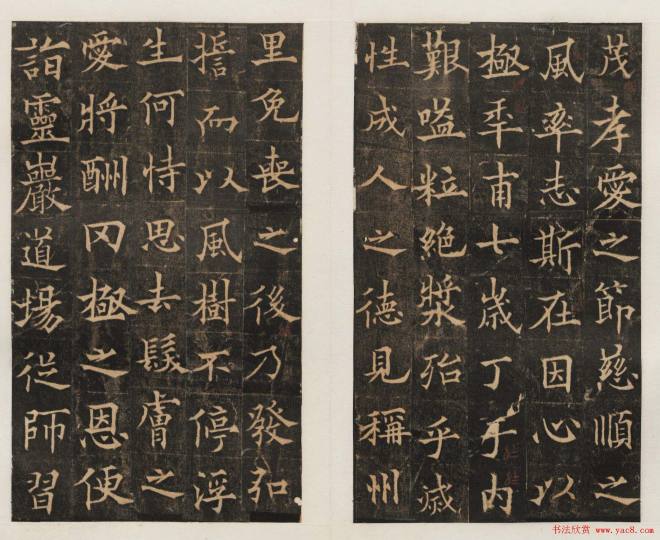 茂孝愛之節慈順之
風率志斯在因心以
極年甫七歲丁于內
艱嗌粒絕漿殆乎滅
性成人之德見稱州
里免喪之後乃發弘
誓而以風樹不停浮
生何恃思去髮膚之
愛將酬罔極之恩便
詣靈巖道場從師習
书法欣赏 www.yac8.com